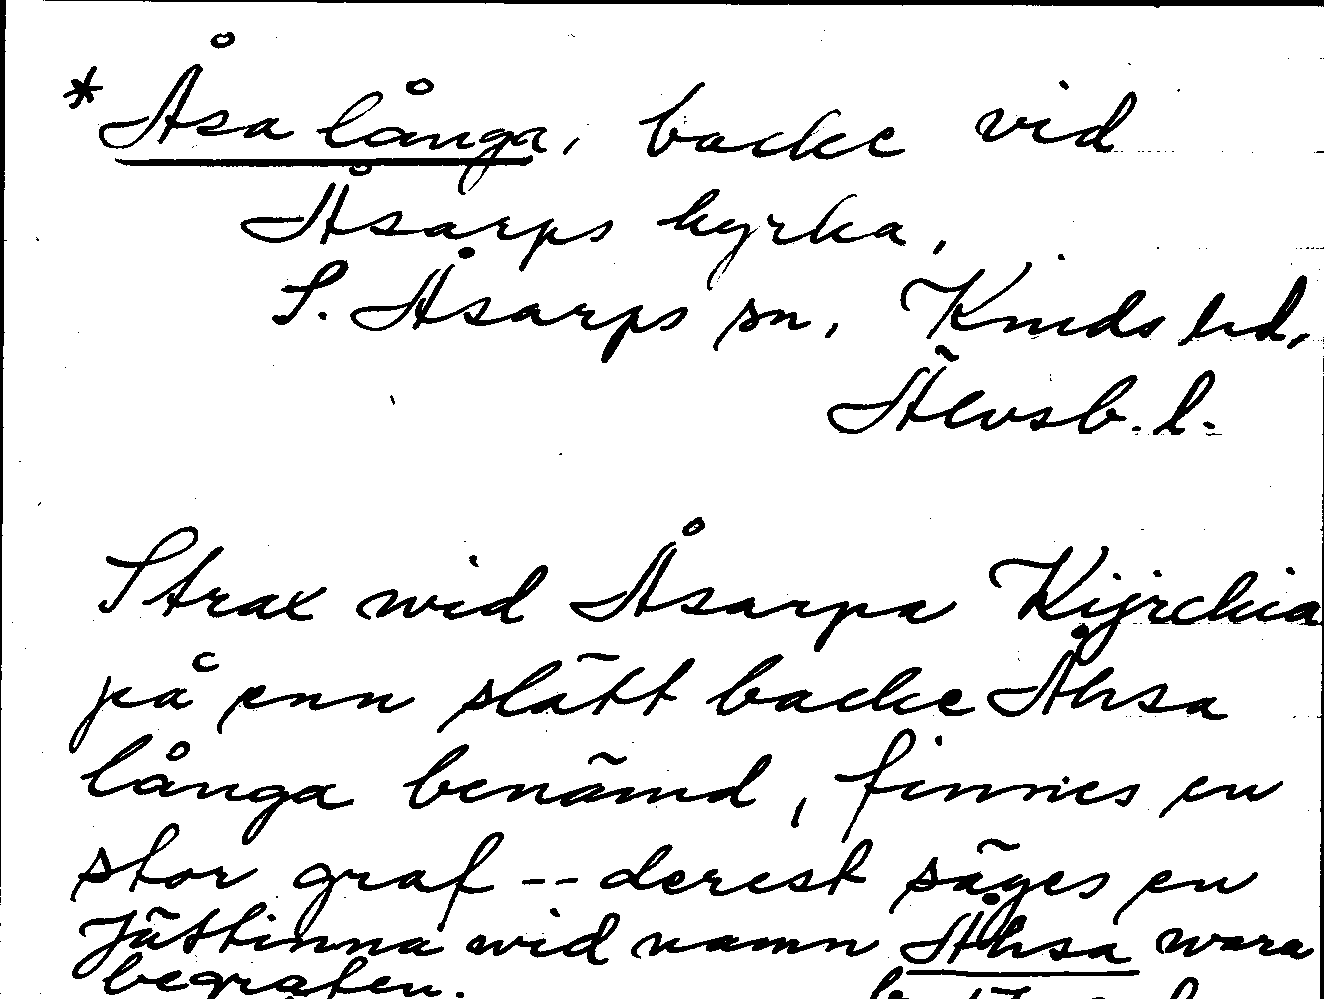 * Åsa långa, backe vid
Åsarps kyrka,
S. Åsarps sn, Kinds hd,
Älvsb. l.
Strax wid Åsarpa Kijrckia
på enn slätt backe Åhsa
långa benämd, finnes en
stor graf -- derest säges en
Jättinna wid namn Åhsa wara
begrafen.